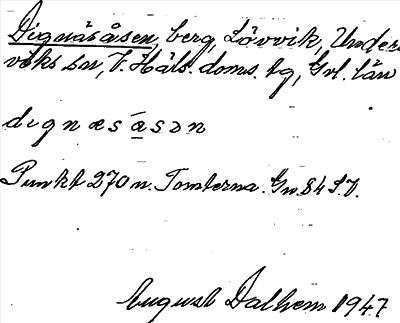 Dignäsåsen, berg, Lövvik, Unders-
viks sn, V. Häls. doms. tg, Gvl. län
dignæsåsən
Punkt 270 n. Tomterna. Gv. 84 S.V.
August Dalhem 1947